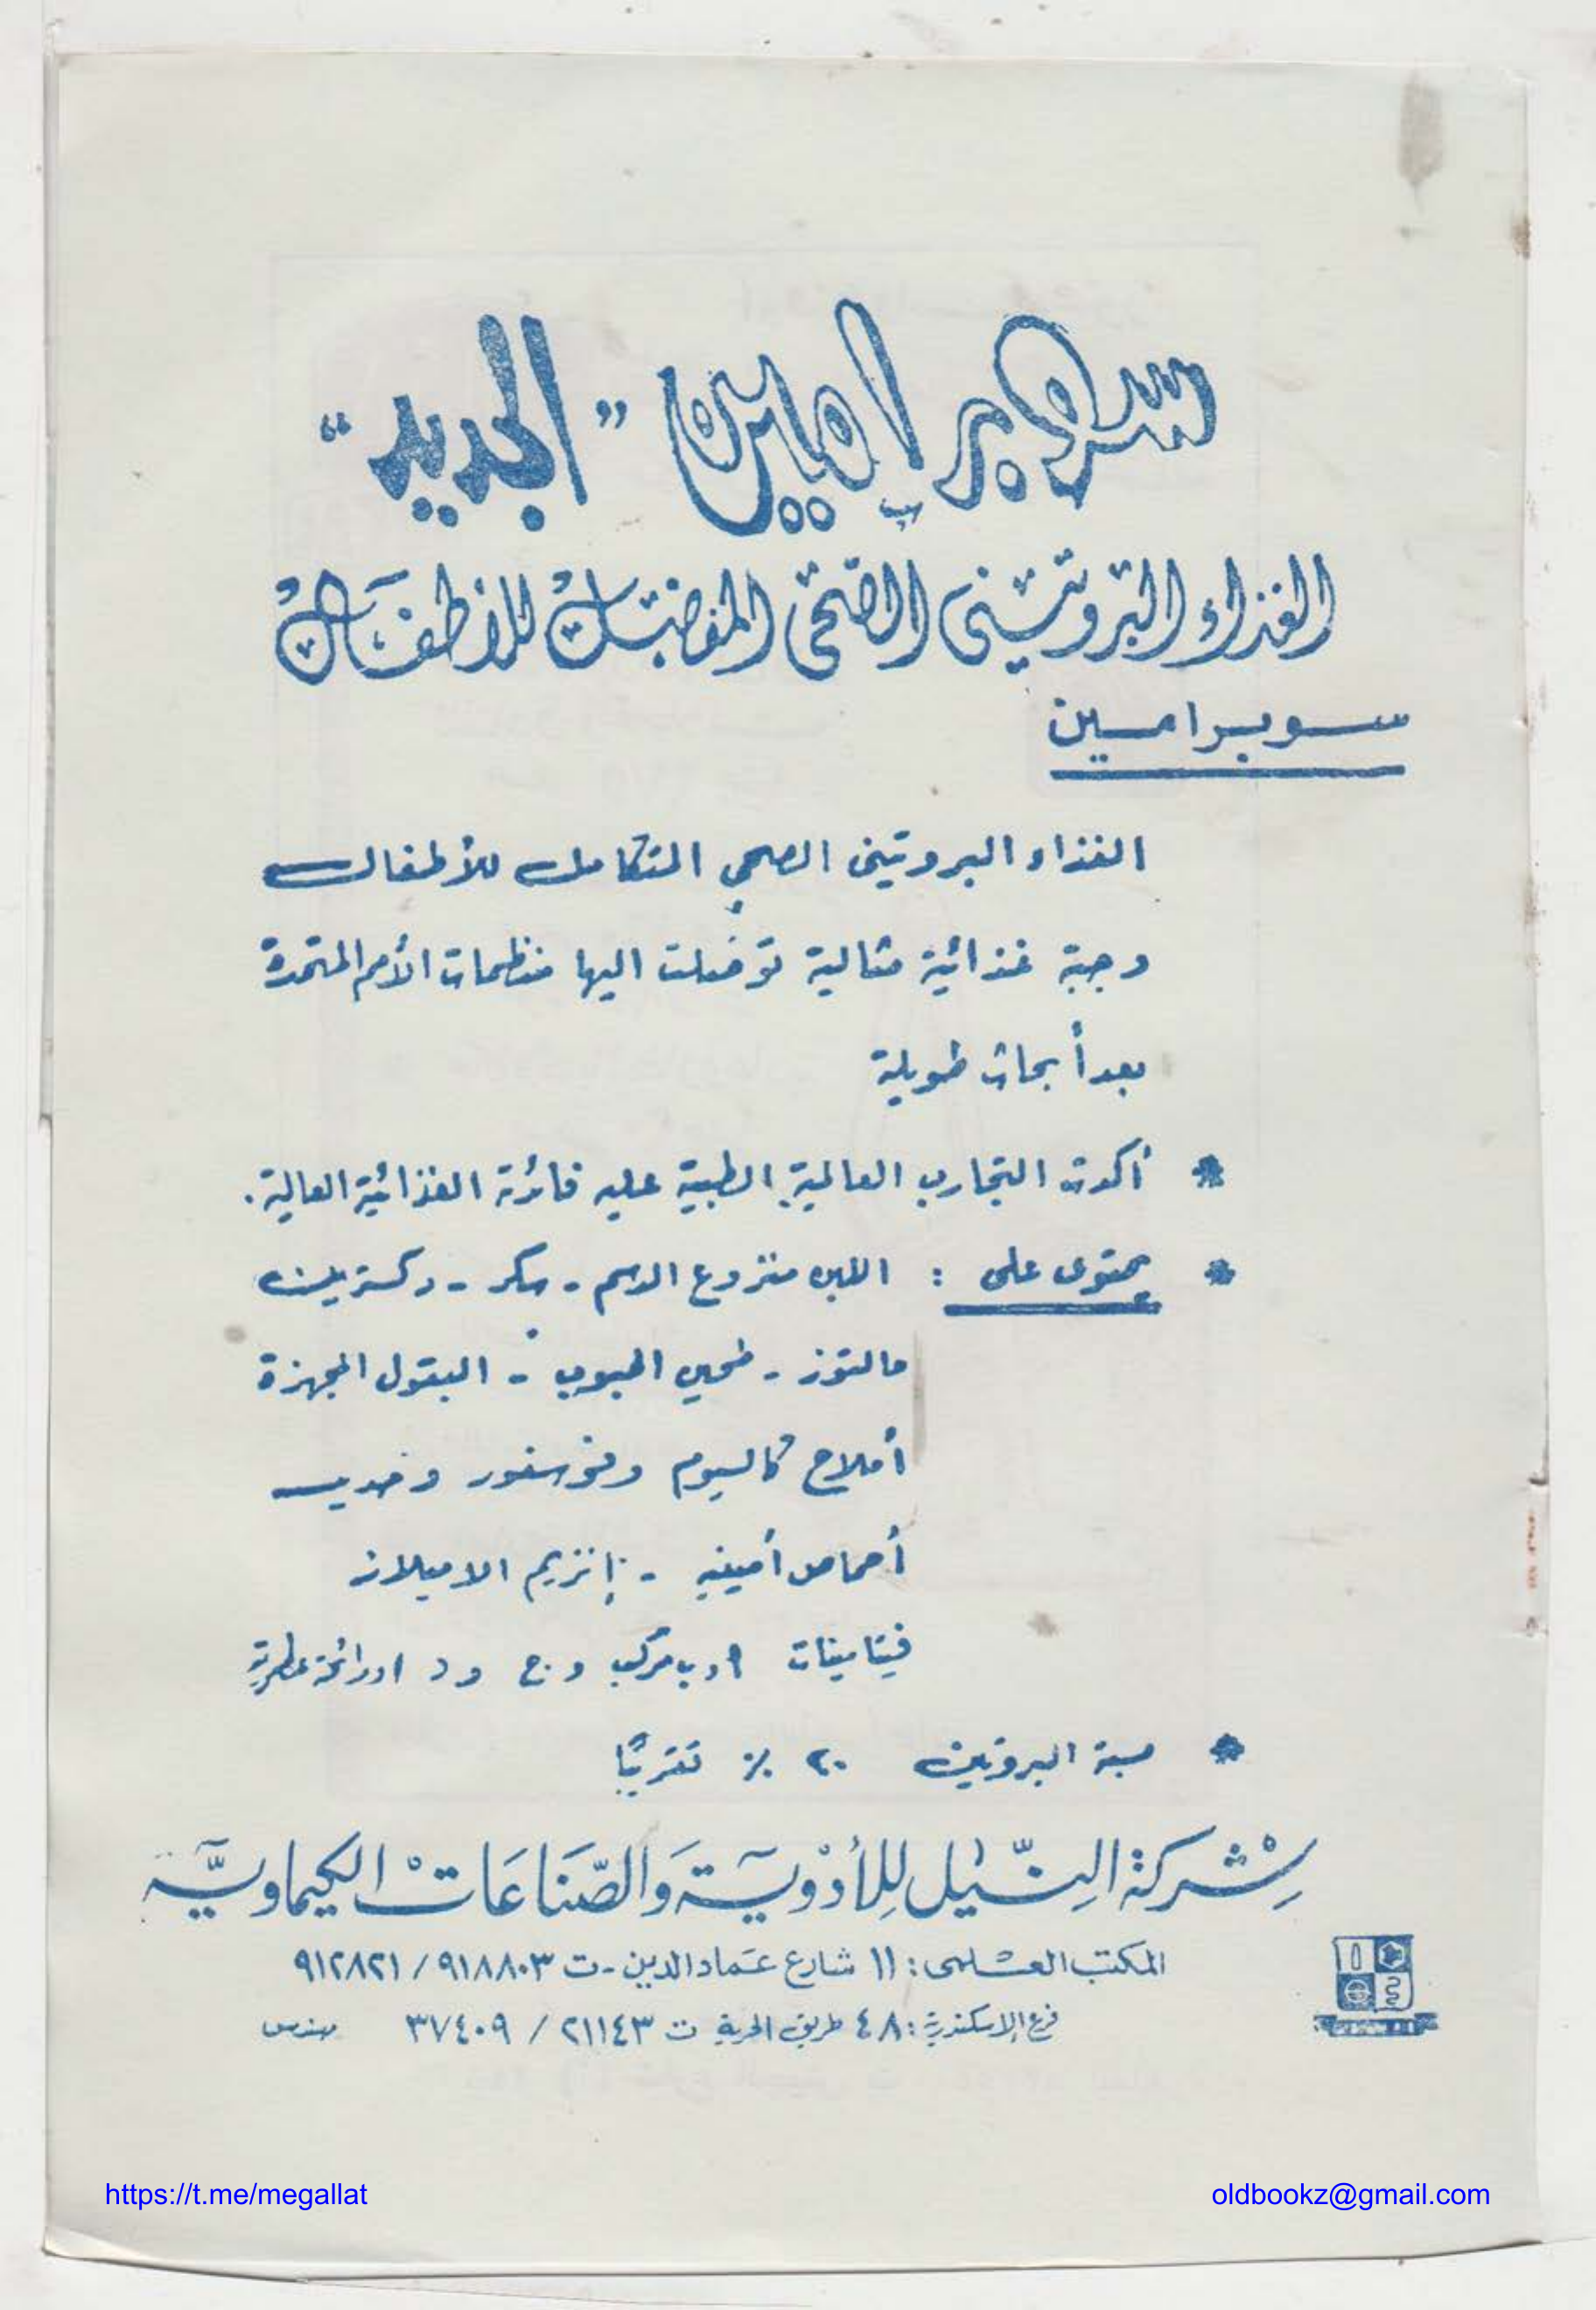 سوبرامين "الجديد"
الغذاء البروتينى الصحى المفضل للأطفال
سوبرامين
الغذاء البروتينى الصحى المتكامل للأطفال
وجبة غذائية مثالية توصلت اليها منظمات الأمم المتحدة
بعد أبحاث طويلة
* أكدت التجارب العالمية الطبية عليه فائدته الغذائية العالية.
* يحتوى على : اللبن منزوع الدسم - سكر - دكسترين
مالتوز - طحين الحبوب - البقول المجهزة
أملاح كالسيوم وفوسفور وحديد
أحماض أمينيه - إنزيم الاميلاز
فيتامينات ا و ب مركب و ج و د ورائحة عطرية
* نسبة البروتين ٢٠ ٪ تقريبًا
شركة النيل للأدوية والصناعات الكيماوية
المكتب العلمى : ١١ شارع عماد الدين - ت ٩١٨٨٠٣ / ٩١٢٨٢١
فرع الإسكندرية : ٤٨ طريق الحرية ت ٢١١٤٣ / ٣٧٤٠٩ مهندس
https://t.me/megallat
oldbookz@gmail.com